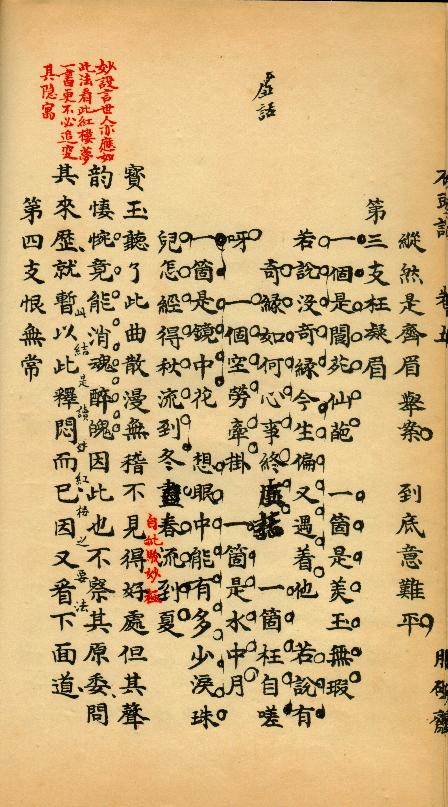 石頭記 卷五 脂硯齋
縱然是齊眉舉案 到底意難平
第三支枉凝眉
一個是閬苑仙葩 一箇是美玉無瑕
若說沒奇緣今生偏又遇着他 若說有
虛話
奇緣如何心事終虛話 一箇枉自嗟
呀 一個空勞牽掛 一箇是水中月
一箇是鏡中花 想眼中能有多少淚珠
兒怎經得秋流到冬盡春流到夏
自批駁妙極
寶玉聽了此曲散漫無稽不見得好處但其聲
韵悽惋竟能消魂醉魄因此也不察其原委問
此結是讀紅樓之要法
其來歷就暫以此釋悶而已因又看下面道
妙設言世人亦應如
此法看此紅樓夢
一書更不必追究
其隐寓
第四支恨無常